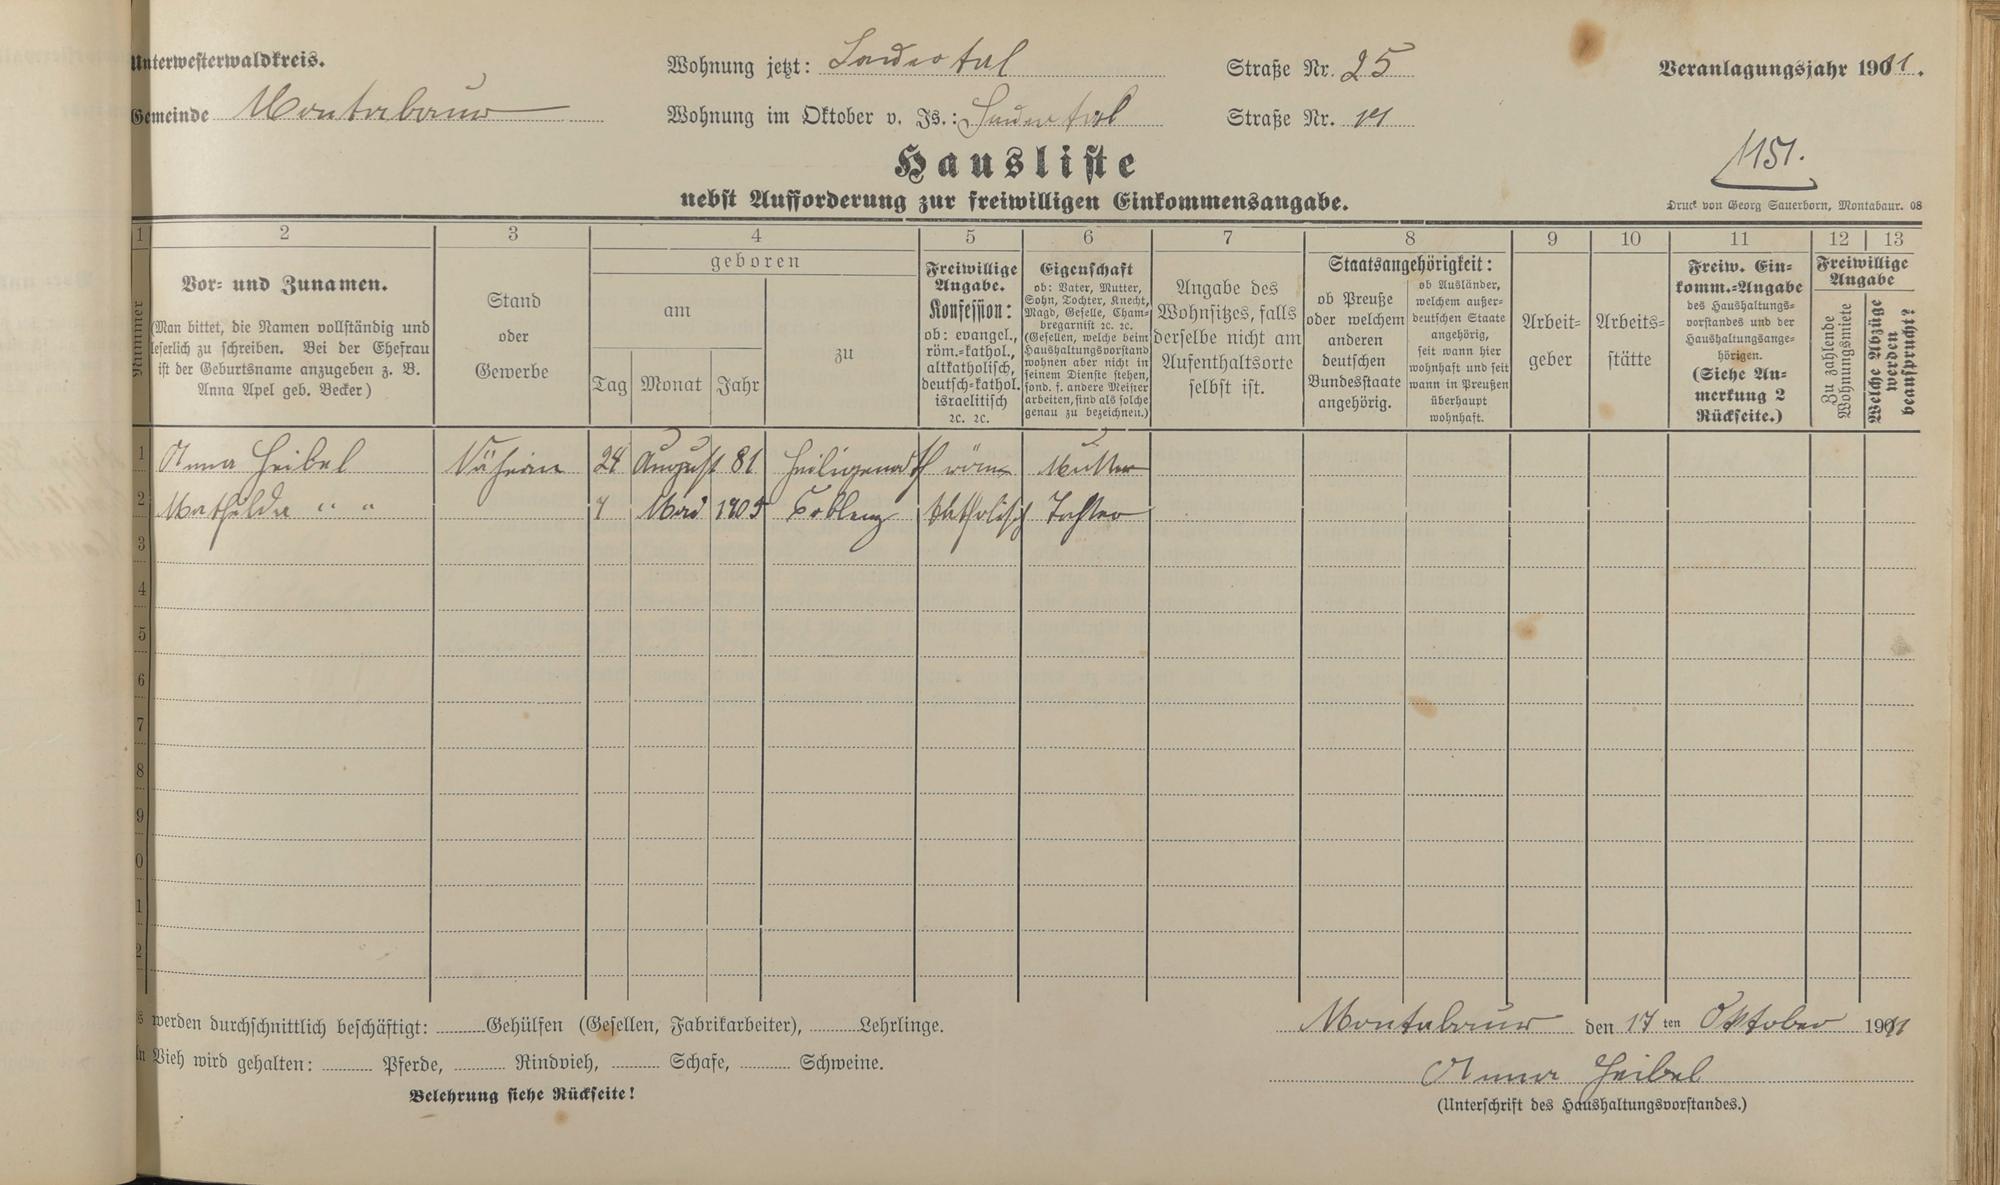 Unterwesterwaldkreis.
Gemeinde Montabaur
Wohnung jetzt: Sauertal Straße Nr. 25
Wohnung im Oktober v. Js.: Sauertal Straße Nr. 14
Veranlagungsjahr 1911.
1151.
Hausliste
nebst Aufforderung zur freiwilligen Einkommensangabe.
Druck von Georg Sauerborn, Montabaur. 08
1 2 3 4 5 6 7 8 9 10 11 12 13
Nummer
Vor- und Zunamen.
(Man bittet, die Namen vollständig und
leserlich zu schreiben. Bei der Ehefrau
ist der Geburtsname anzugeben z. B.
Anna Apel geb. Becker)
Stand
oder
Gewerbe
geboren
am
Tag Monat Jahr
zu
Freiwillige
Angabe.
Konfession:
ob: evangel.,
röm.-kathol.,
altkatholisch,
deutsch-kathol.
israelitisch
2c. 2c.
Eigenschaft
ob: Vater, Mutter,
Sohn, Tochter, Knecht,
Magd, Geselle, Cham-
bregarnist 2c. 2c.
(Gesellen, welche beim
Haushaltungsvorstand
wohnen aber nicht in
seinem Dienste stehen,
sond. f. andere Meister
arbeiten, sind als solche
genau zu bezeichnen.)
Angabe des
Wohnsitzes, falls
derselbe nicht am
Aufenthaltsorte
selbst ist.
Staatsangehörigkeit:
ob Preuße
oder welchem
anderen
deutschen
Bundesstaate
angehörig.
ob Ausländer,
welchem außer-
deutschen Staate
angehörig,
seit wann hier
wohnhaft und seit
wann in Preußen
überhaupt
wohnhaft.
Arbeit-
geber
Arbeits-
stätte
Freiw. Ein-
komm.-Angabe
des Haushaltungs-
vorstandes und der
Haushaltungsange-
hörigen.
(Siehe An-
merkung 2
Rückseite.)
Freiwillige
Angabe
Zu zahlende
Wohnungsmiete
Welche Abzüge
werden
beansprucht?
1 Anna Heibel Näherin 24 August 81 Heiligenroth röm. Mutter
2 Mathilde " " 7 Mai 1905 Coblenz katholisch Tochter
3
4
5
6
7
8
9
0
1
2
s werden durchschnittlich beschäftigt: Gehülfen (Gesellen, Fabrikarbeiter), Lehrlinge.
n Vieh wird gehalten: Pferde, Rindvieh, Schafe, Schweine.
Belehrung siehe Rückseite!
Montabaur den 17 ten Oktober 1911
Anna Heibel
(Unterschrift des Haushaltungsvorstandes.)